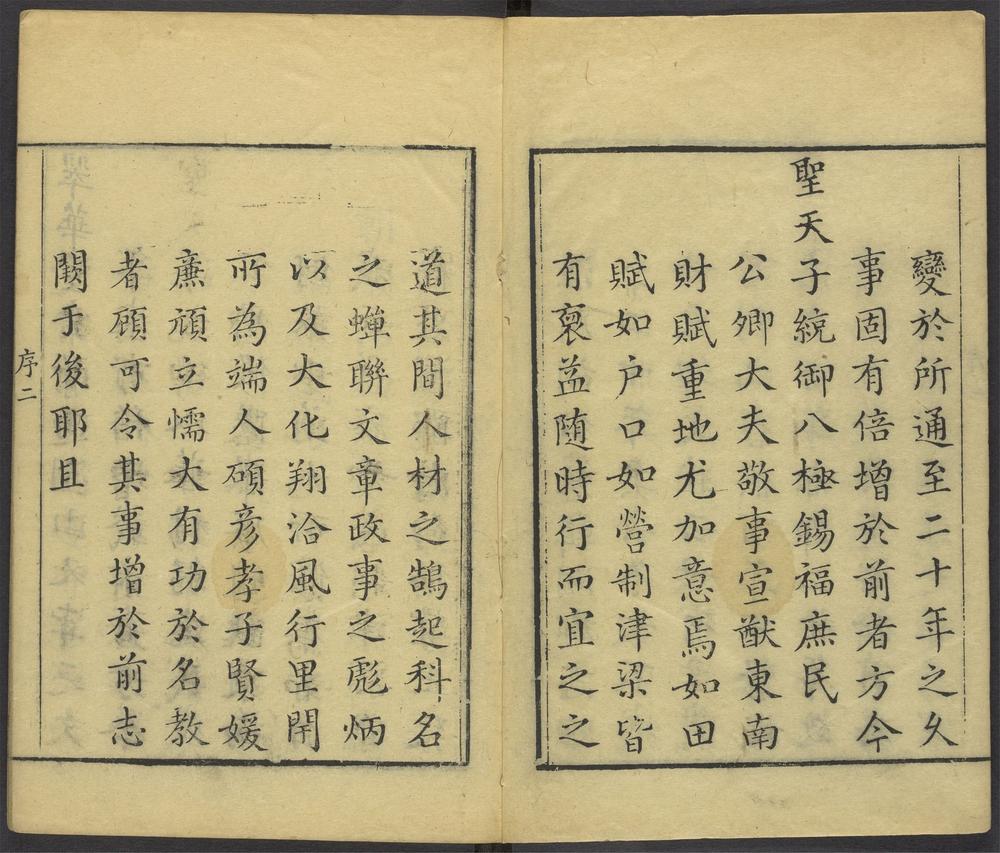 變於所通至二十年之久
事固有倍增於前者方今
聖天子統御八極錫福庶民
公卿大夫敬事宣猷東南
財賦重地尤加意焉如田
賦如户口如營制津梁皆
有裒益随時行而宜之之
道其間人材之鵠起科名
之蟬聯文章政事之彪炳
以及大化翔洽風行里閈
所為端人碩彦孝子賢媛
亷頑立懦大有功於名教
者顧可令其事增於前志
闕于後耶且
序二